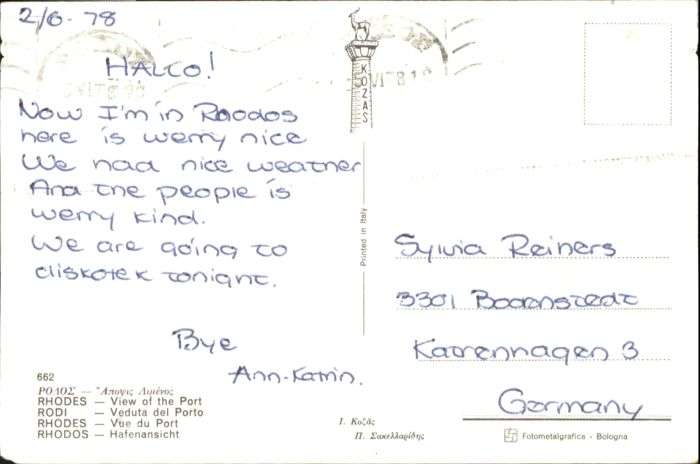 2/6-78
HALLO!
Now I'm in Rhodos
here is werry nice
We had nice weather
And the people is
werry kind.
We are going to
diskotek tonight.
Bye
Ann-Katrin.
KOZAS
Printed in Italy
Sylvia Reiners
3301
3
Germany
662
ΡΟΔΟΣ — Ἄποψις Λιμένος
RHODES — View of the Port
RODI — Veduta del Porto
RHODES — Vue du Port
RHODOS — Hafenansicht
Ι. Κοζᾶς
Π. Σακελλαρίδης
Fotometalgrafica - Bologna